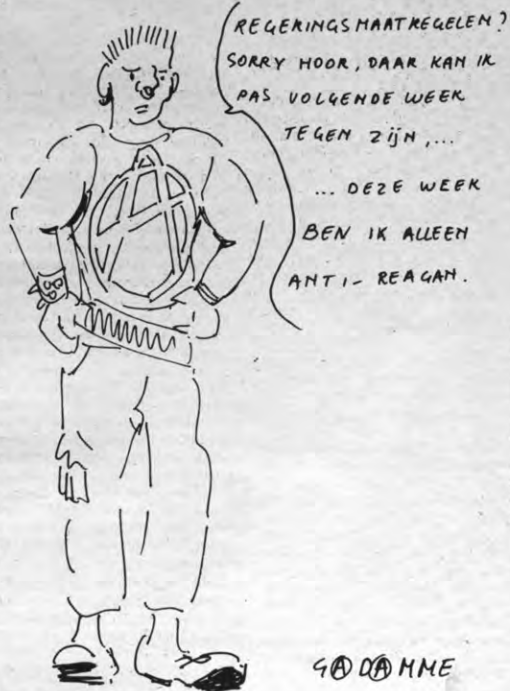 REGERINGSMAATREGELEN?
SORRY HOOR, DAAR KAN IK
PAS VOLGENDE WEEK
TEGEN ZIJN,...
... DEZE WEEK
BEN IK ALLEEN
ANTI-REAGAN.
A
GⒶDⒶMME